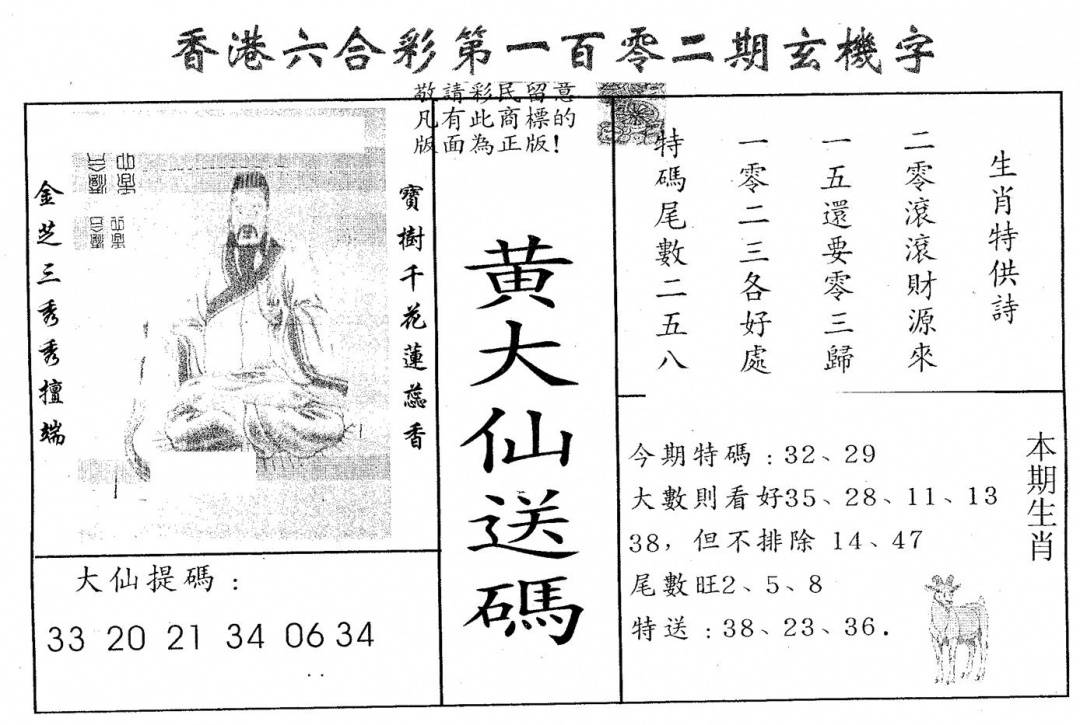 香港六合彩第一百零二期玄機字
敬請彩民留意
凡有此商標的
版面為正版!
金芝三秀秀擅端
寶樹千花蓮蕊香
黄大仙送碼
生肖特供詩
二零滾滾財源來
一五還要零三歸
一零二三各好處
特碼尾數二五八
大仙提碼:
33 20 21 34 06 34
本期生肖
今期特碼:32、29
大數則看好35、28、11、13
38，但不排除 14、47
尾數旺2、5、8
特送:38、23、36.